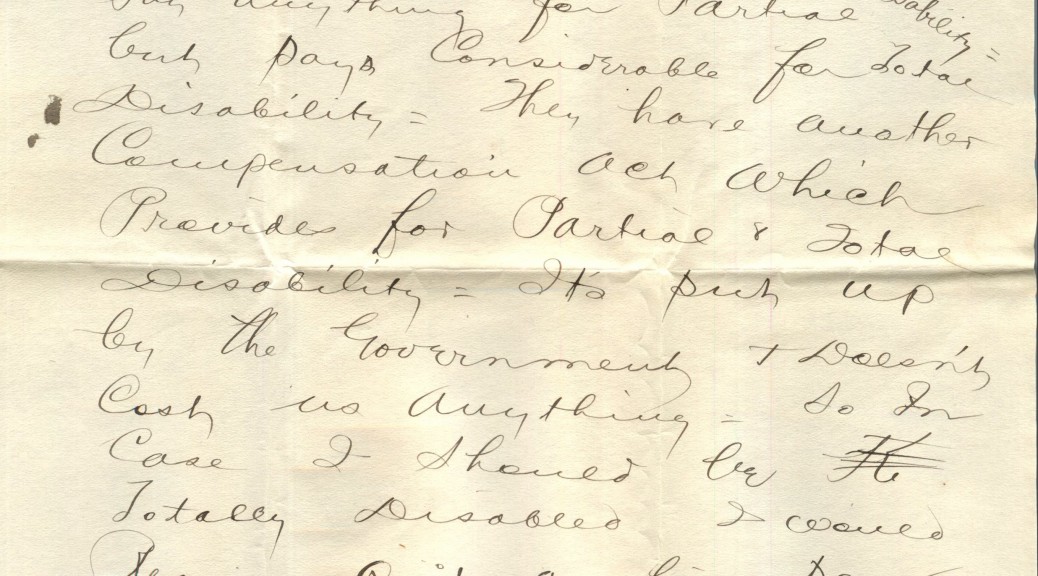 anything for Partial Disability =
but pays Considerable for Total
Disability = They have another
Compensation act which
Provides for Partial & Total
Disability = Its put up
by the Government + Doesn't
Cost us anything = So In
Case I should be
Totally Disabled I would